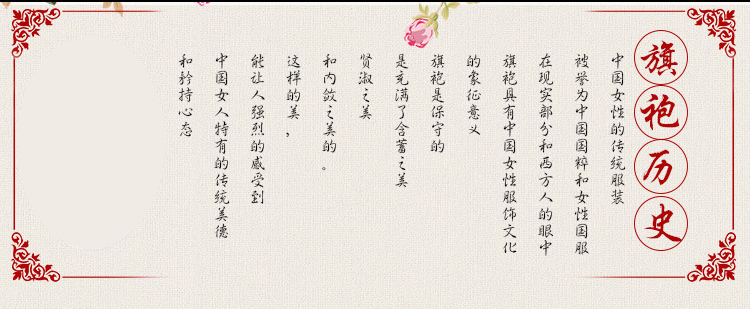 旗袍历史
中国女性的传统服装
被誉为中国国粹和女性国服
在现实部分和西方人的眼中
旗袍具有中国女性服饰文化
的象征意义
旗袍是保守的
是充满了含蓄之美
贤淑之美
和内敛之美的。
这样的美，
能让人强烈的感受到
中国女人特有的传统美德
和矜持心态